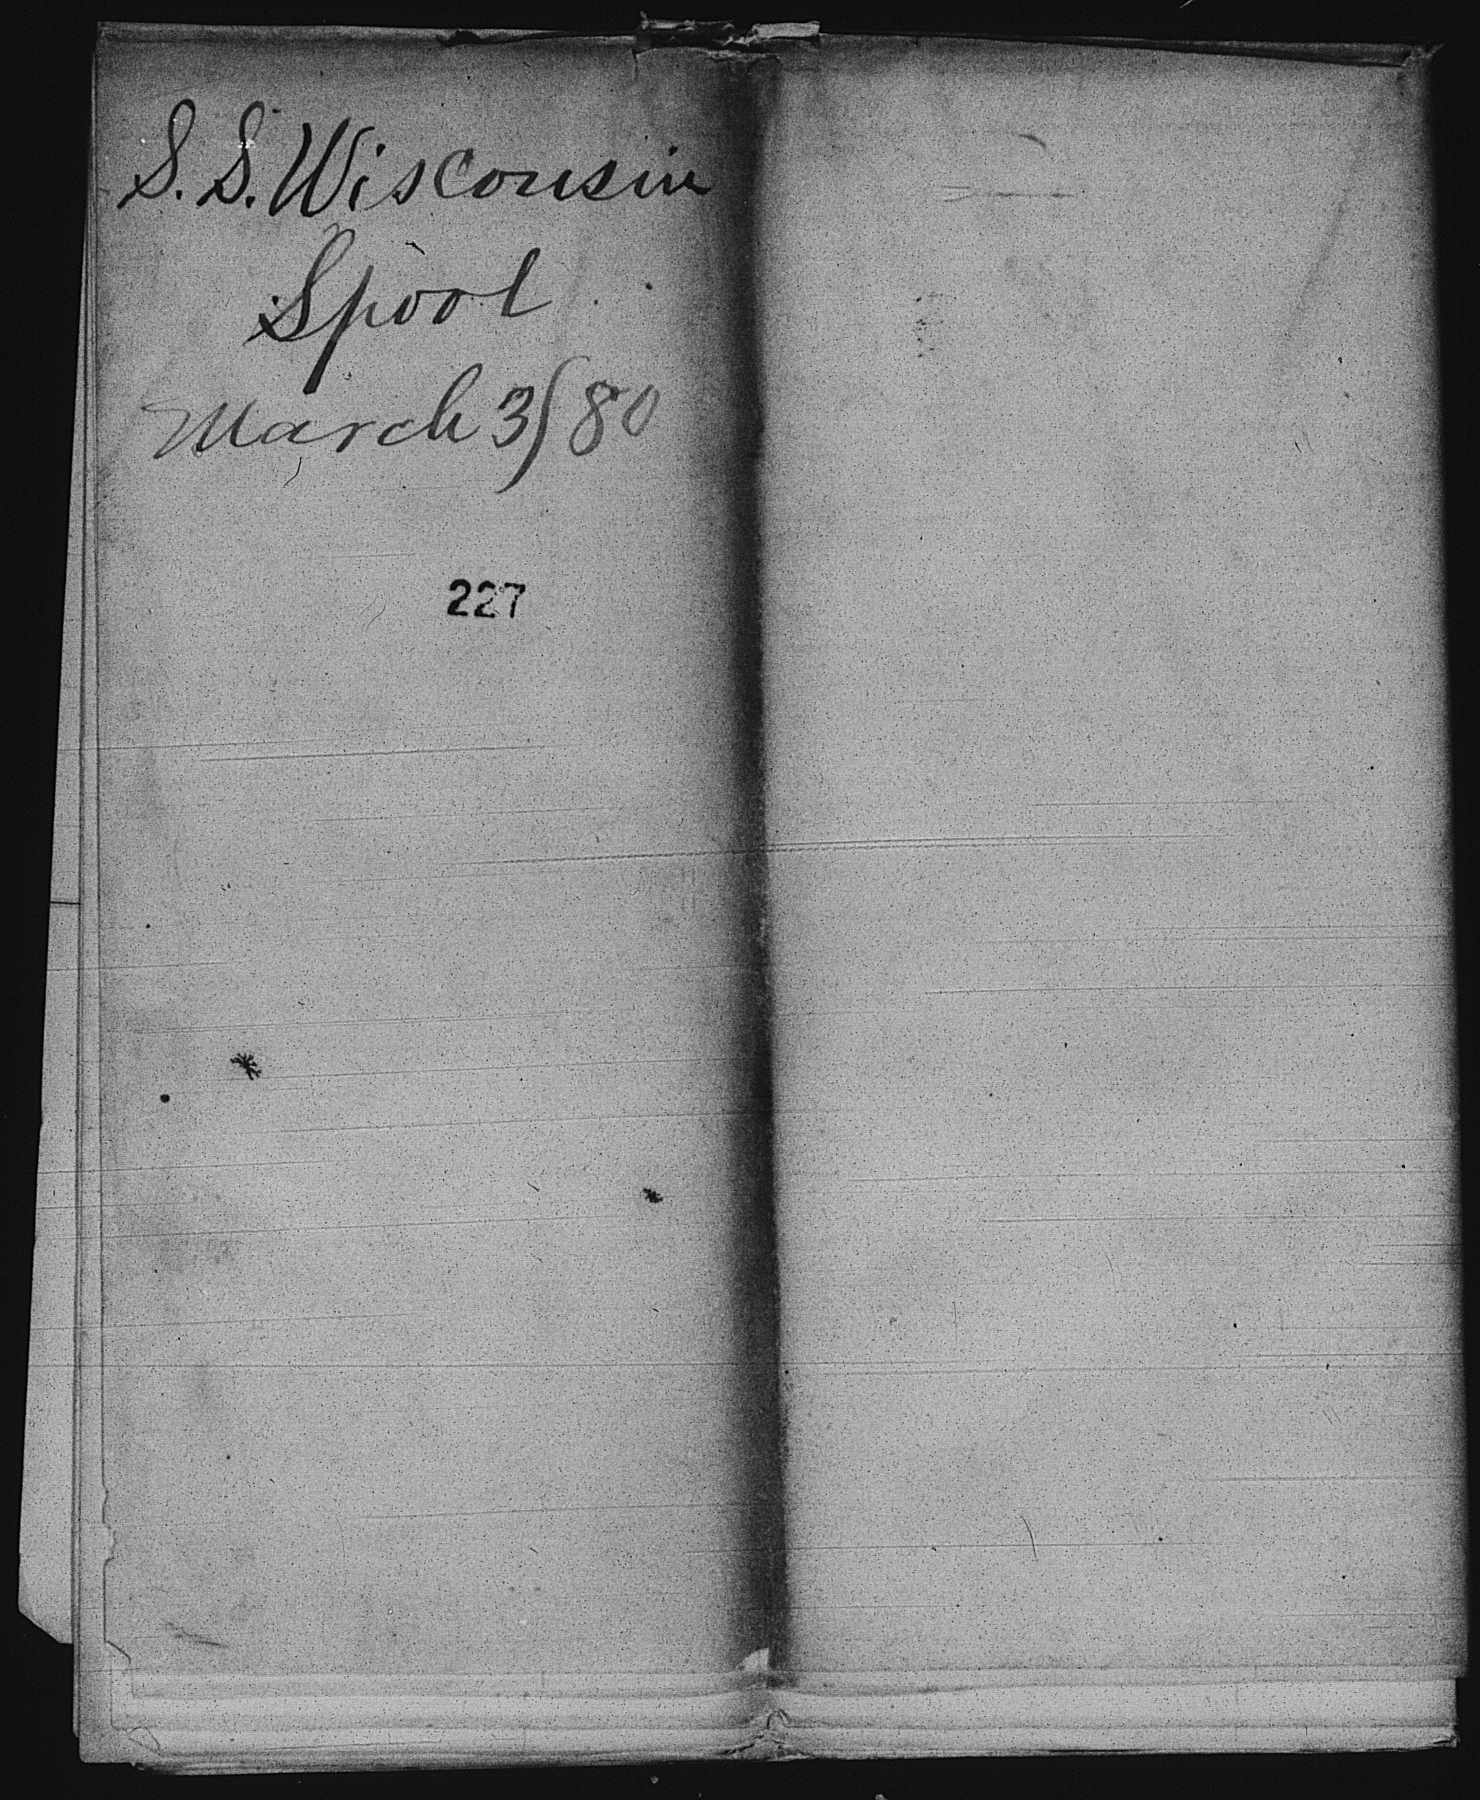 S. S. Wisconsin
Spool
March 3/80
227